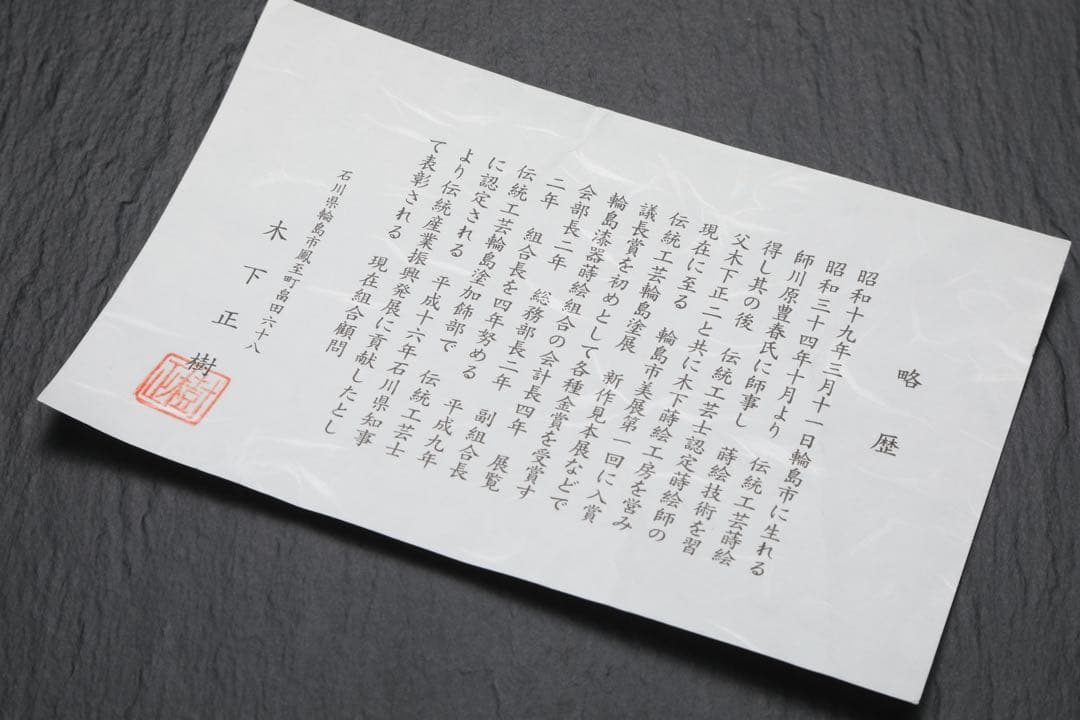 略歴
昭和十九年三月十一日輪島市に生れる
昭和三十四年十月より 伝統工芸蒔絵
師川原豊春氏に師事し 蒔絵技術を習
得し其の後 伝統工芸士認定蒔絵師の
父木下正二と共に木下蒔絵工房を営み
現在に至る 輪島市美展第一回に入賞
伝統工芸輪島塗展 新作見本展などで
議長賞を初めとして各種金賞を受賞す
輪島漆器蒔絵組合の会計長四年 展覧
会部長二年 総務部長二年 副組合長
二年 組合長を四年努める 平成九年
伝統工芸輪島塗加飾部で 伝統工芸士
に認定される 平成十六年石川県知事
より伝統産業振興発展に貢献したとし
て表彰される 現在組合顧問
石川県輪島市鳳至町畠田六十八
木下正樹
正樹